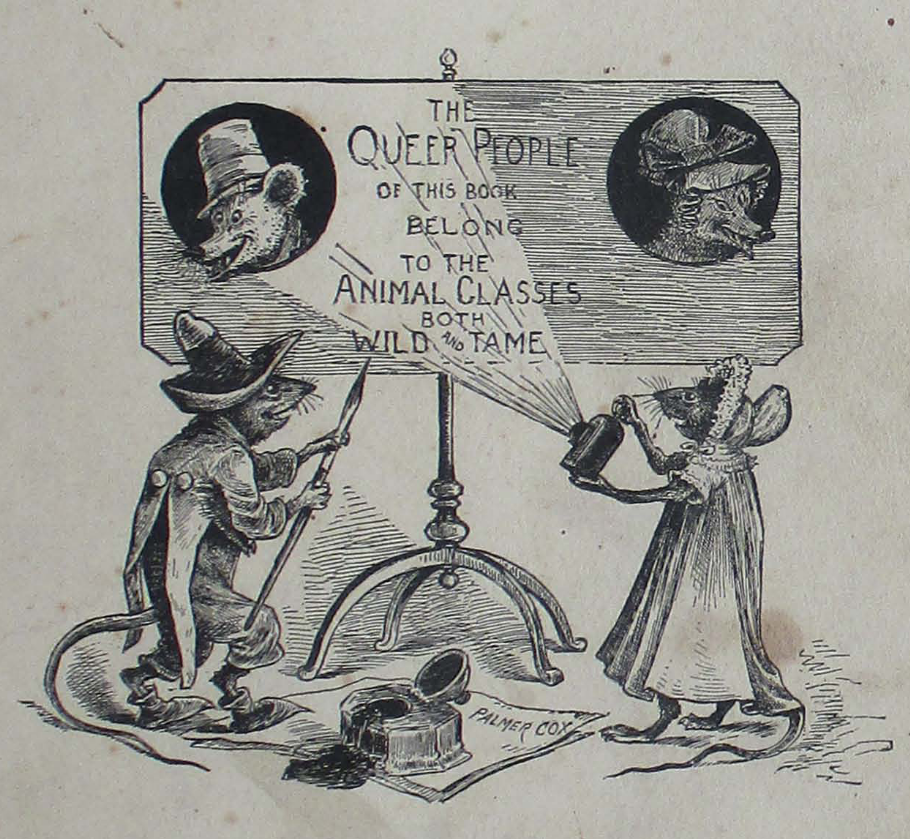 THE
QUEER PEOPLE
OF THIS BOOK
BELONG
TO THE
ANIMAL CLASSES
BOTH
WILD AND TAME
PALMER COX